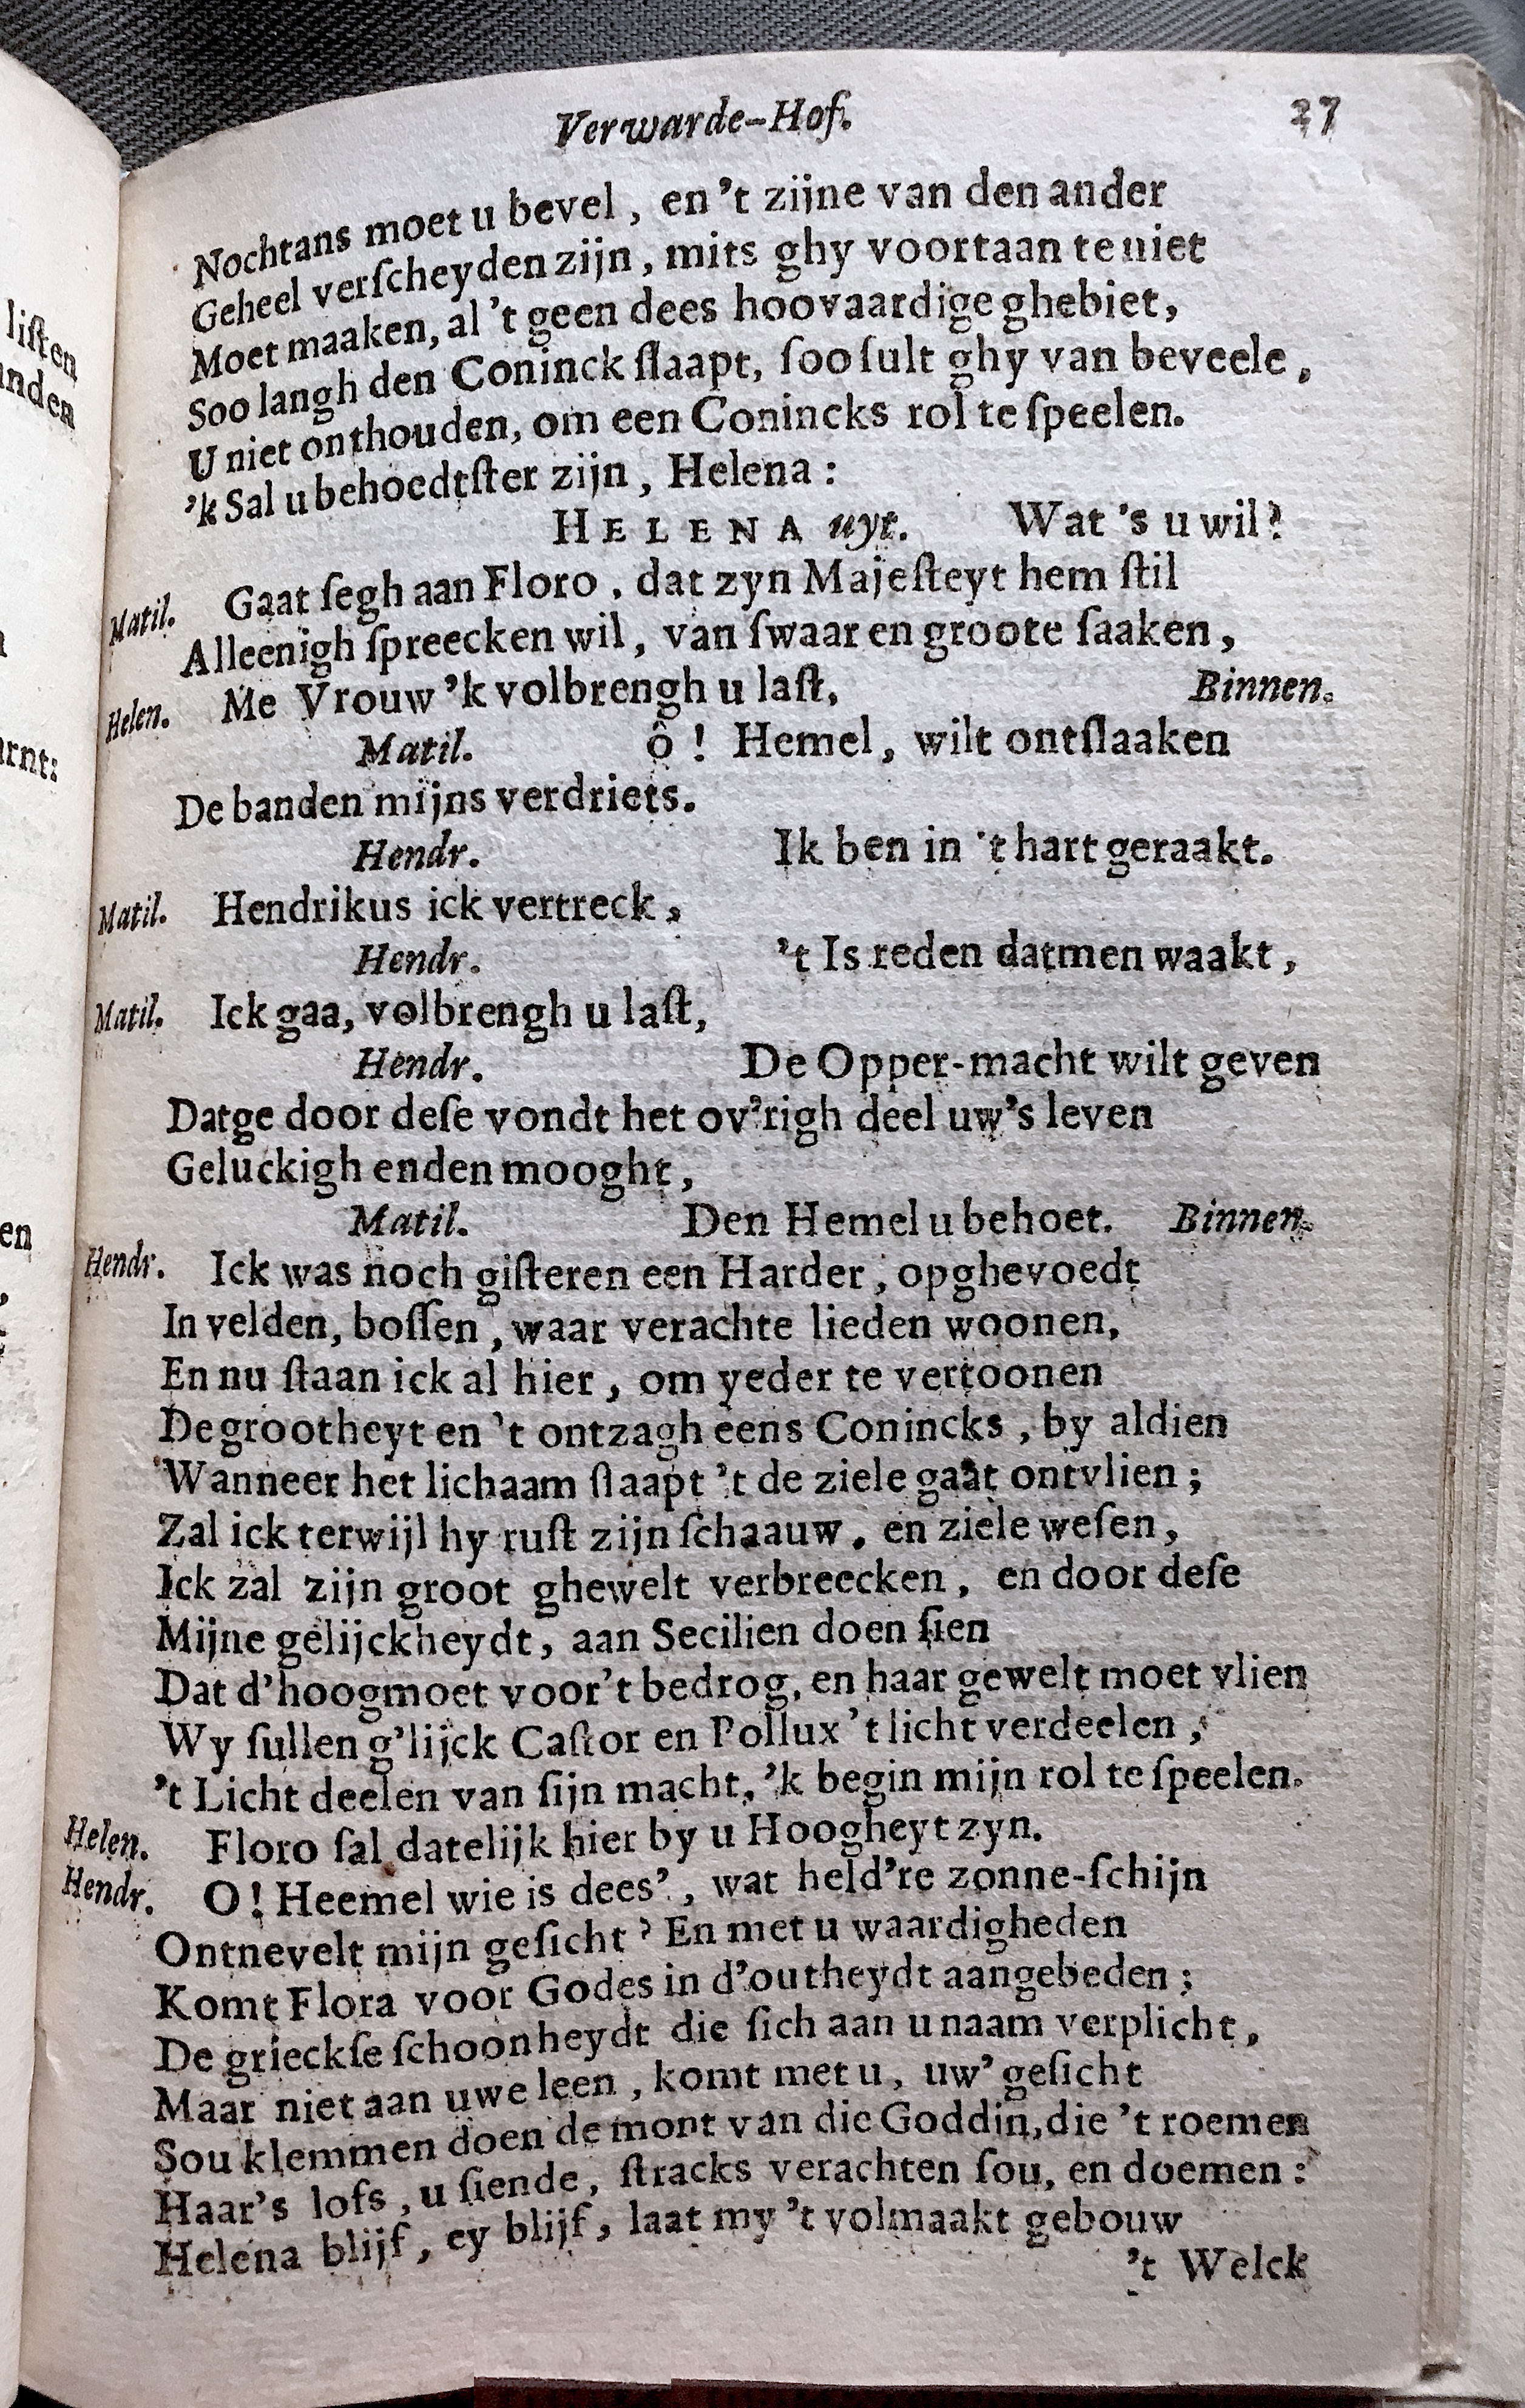 Verwarde-Hof. 27
Nochtans moet u bevel, en 't zijne van den ander
Geheel verſcheyden zijn, mits ghy voortaan te niet
Moet maaken, al 't geen dees hoovaardige ghebiet,
Soo langh den Coninck ſlaapt, ſoo ſult ghy van beveele,
U niet onthouden, om een Conincks rol te ſpeelen.
'k Sal u behoedtſter zijn, Helena:
HELENA uyt. Wat 's u wil?
Matil. Gaat ſegh aan Floro, dat zyn Majeſteyt hem ſtil
Alleenigh ſpreecken wil, van ſwaar en groote ſaaken,
Helen. Me Vrouw 'k volbrengh u laſt, Binnen.
Matil. ô! Hemel, wilt ontſlaaken
De banden mijns verdriets.
Hendr. Ik ben in 't hart geraakt.
Matil. Hendrikus ick vertreck,
Hendr. 't Is reden datmen waakt,
Matil. Ick gaa, volbrengh u laſt,
Hendr. De Opper-macht wilt geven
Datge door deſe vondt het ov'righ deel uw's leven
Geluckigh enden mooght,
Matil. Den Hemel u behoet. Binnen.
Hendr. Ick was noch giſteren een Harder, opghevoedt
In velden, boſſen, waar verachte lieden woonen,
En nu ſtaan ick al hier, om yeder te vertoonen
De grootheyt en 't ontzagh eens Conincks, by aldien
Wanneer het lichaam ſlaapt 't de ziele gaat ontvlien;
Zal ick terwijl hy ruſt zijn ſchaauw, en ziele weſen,
Ick zal zijn groot ghewelt verbreecken, en door deſe
Mijne gelijckheydt, aan Secilien doen ſien
Dat d'hoogmoet voor't bedrog, en haar gewelt moet vlien
Wy ſullen g'lijck Caſtor en Pollux 't licht verdeelen,
't Licht deelen van ſijn macht, 'k begin mijn rol te ſpeelen.
Helen. Floro ſal datelijk hier by u Hoogheyt zyn.
Hendr. O! Heemel wie is dees', wat held're zonne-ſchijn
Ontnevelt mijn geſicht? En met u waardigheden
Komt Flora voor Godes in d'outheydt aangebeden;
De grieckſe ſchoonheydt die ſich aan u naam verplicht,
Maar niet aan uwe leen, komt met u, uw' geſicht
Sou klemmen doen de mont van die Goddin, die 't roemen
Haar's lofs, u ſiende, ſtracks verachten ſou, en doemen:
Helena blijf, ey blijf, laat my 't volmaakt gebouw
't Welck
liſten
nden
rnt:
en